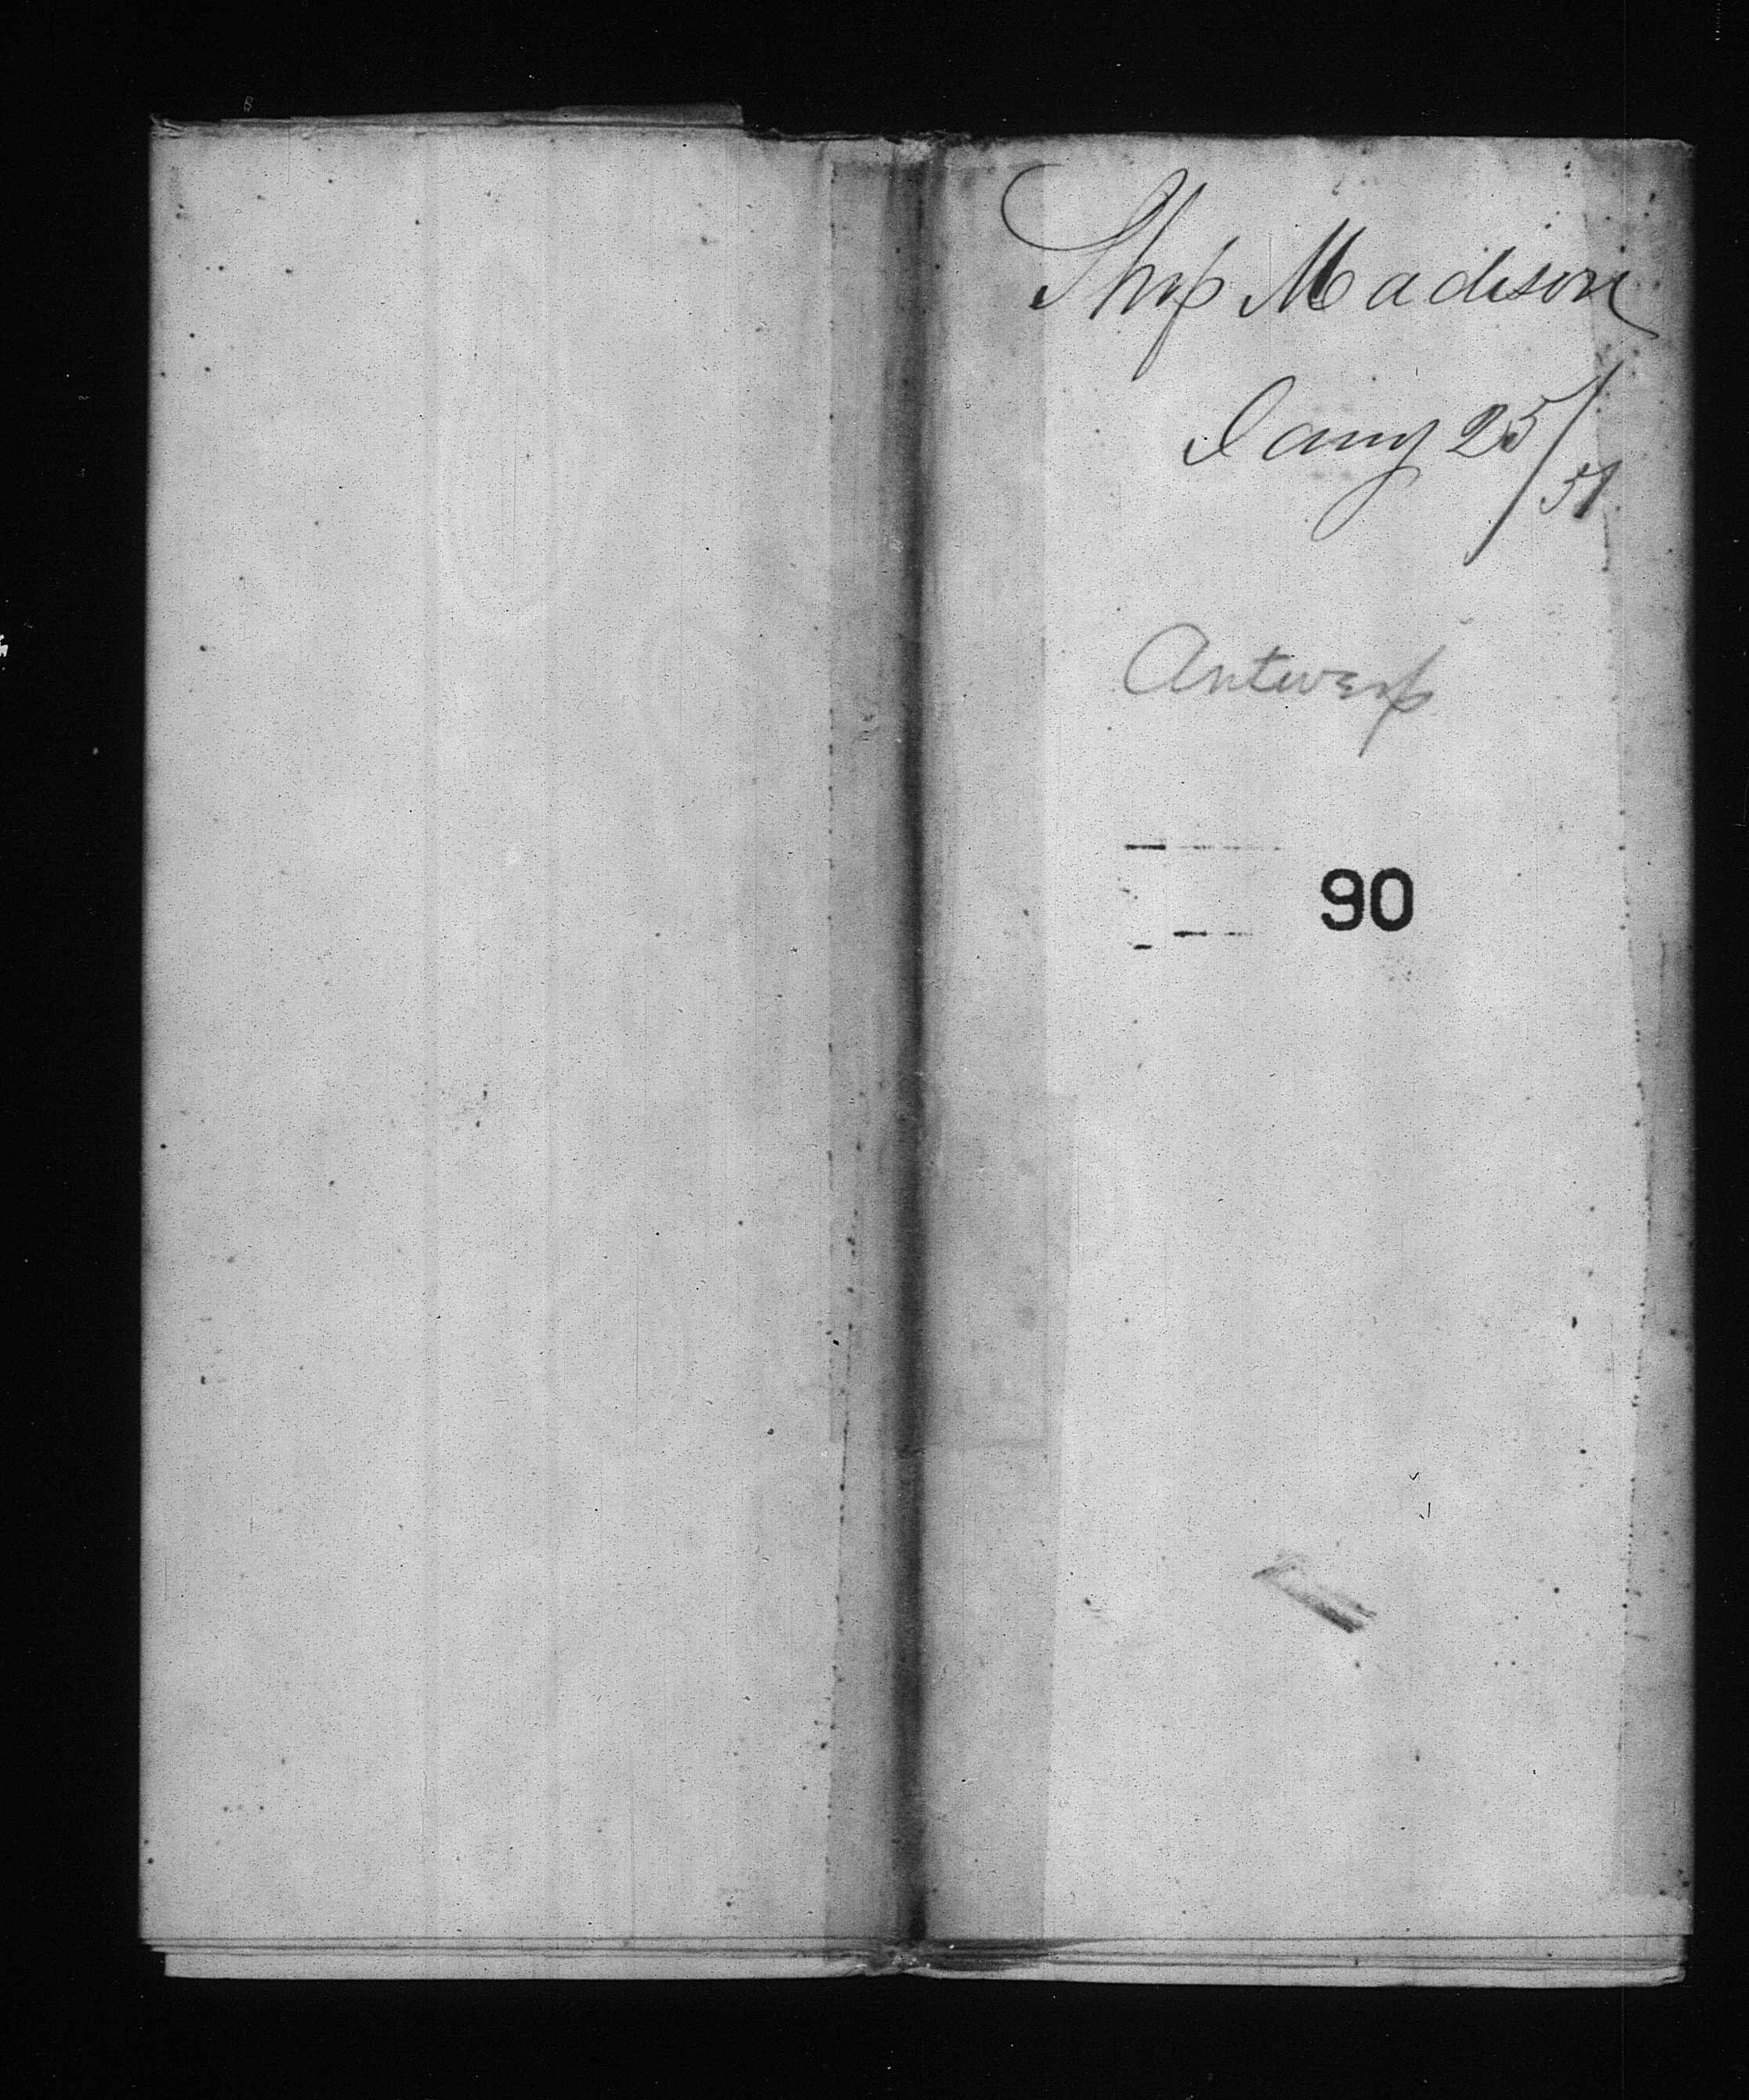 Ship Madison
Jany 25/51
Antwerp
90